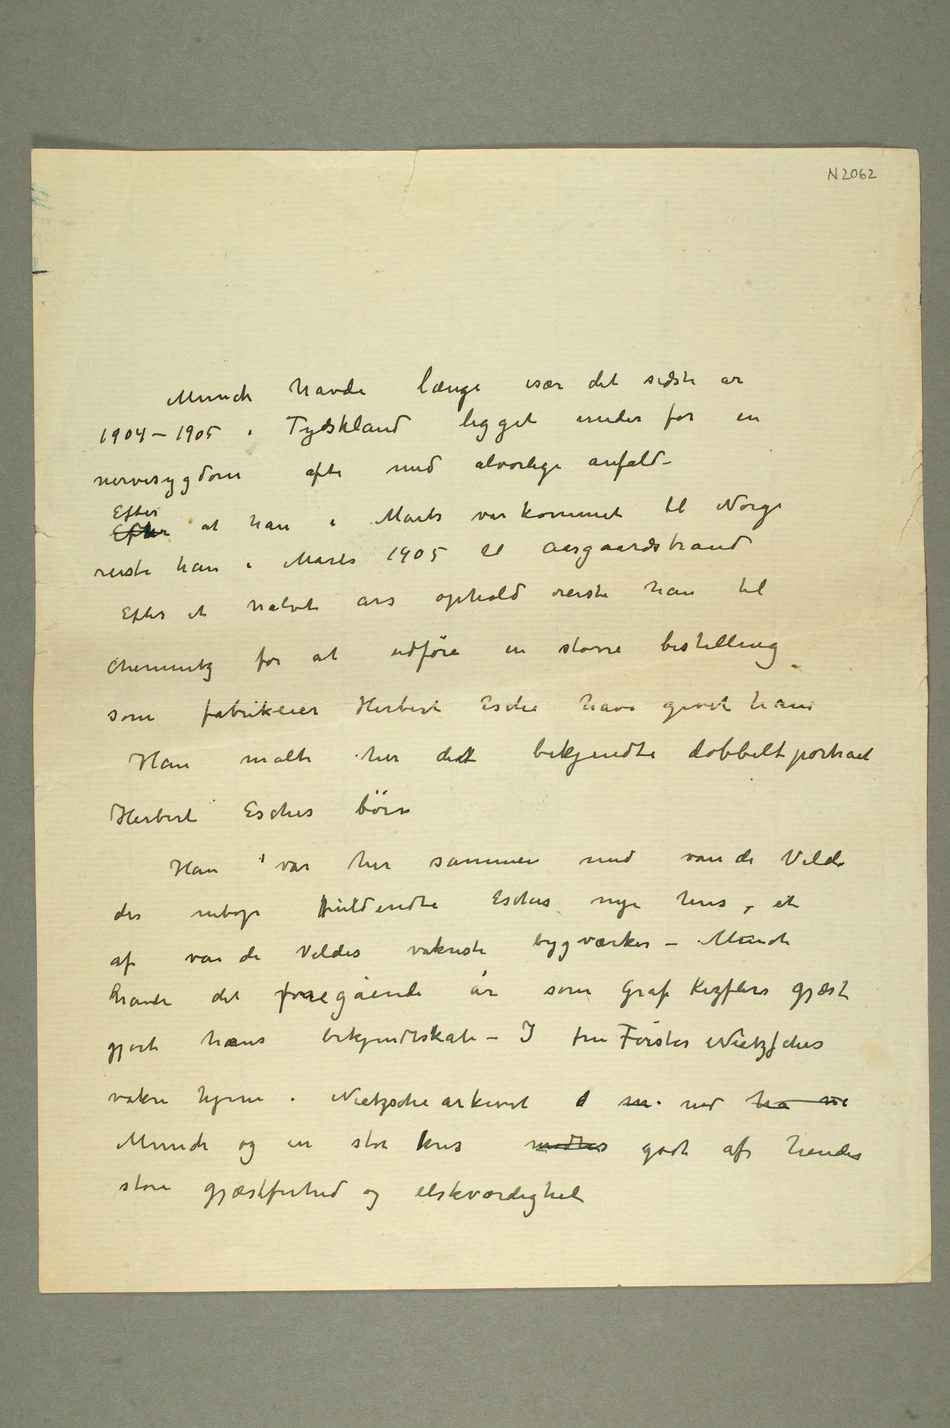 N 2062
Munch havde længe især det sidste år
1904–1905 i Tydskland ligget under for en
nervesygdom ofte med alvorlige anfald –
Efter
Efter at han i Marts var kommet til Norge
reiste han i Marts 1905 til Aasgaardstrand
Efter et halvt års ophold reiste han til
Chemnitz for at udføre en større bestilling
som fabrikeier Herbert Esche havde givet ham
Han malte her det bekjendte dobbeltportræt
Herbert Esches börn
Han var her sammen med van de Velde
der netop fuldendte Esches nye hus, et
af van de Veldes vakreste bygværker – Munch
havde det foregående år som Graf Kezflers gjæst
gjort hans bekjendtskab – I fru Förster Nietzsches
vakre hjem i Nietzschearkivet nød ha
Munch og en stor kres mødtes godt af hendes
store gjæstfrihed og elskværdighed